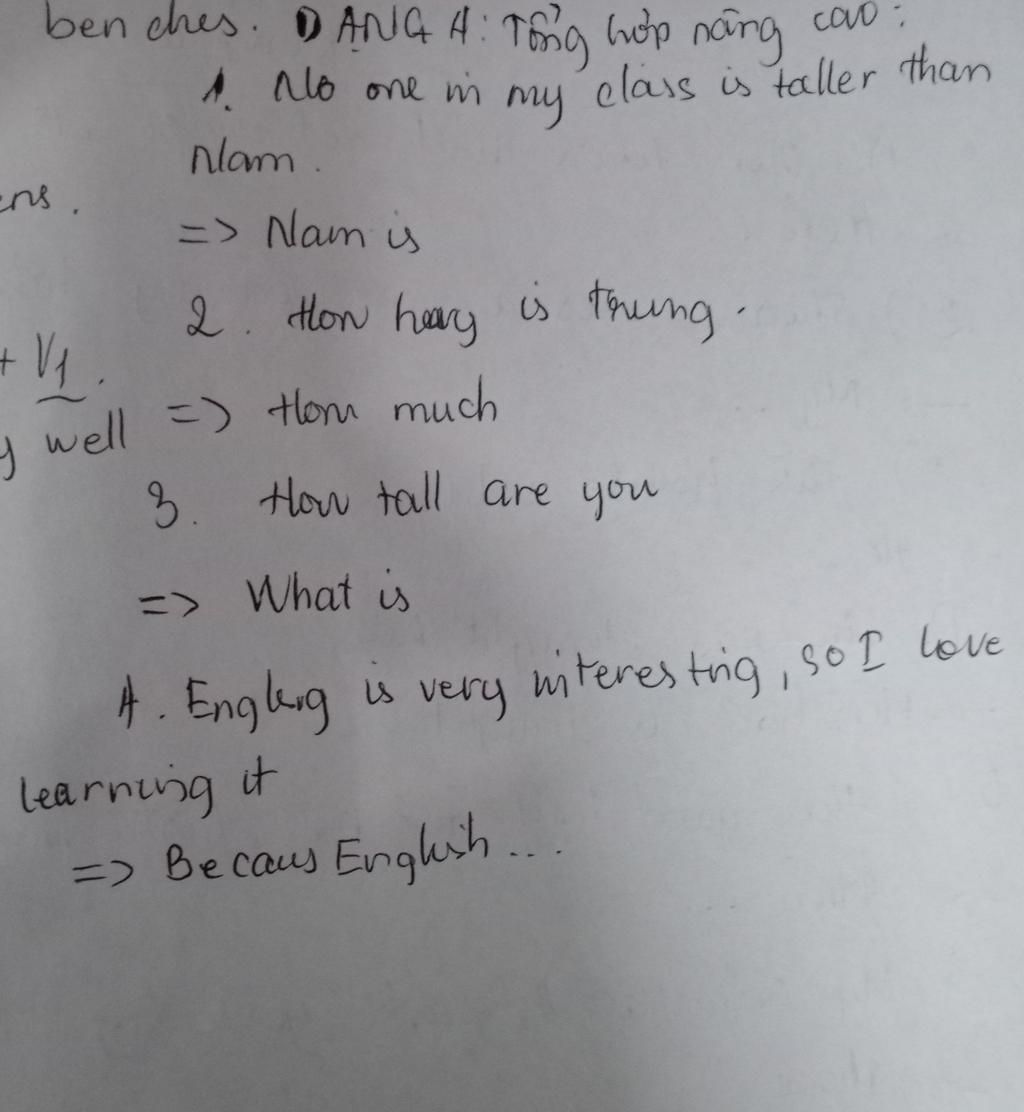 ben ches. DẠNG 4: Tổng hợp nâng cao:
1. No one in my class is taller than
Nam.
ens.
=> Nam is
2. How heavy is Trung.
+ V1.
=> How much
y well
3. How tall are you
=> What is
4. Englisg is very interesting, so I love
learning it
=> Becaus English...